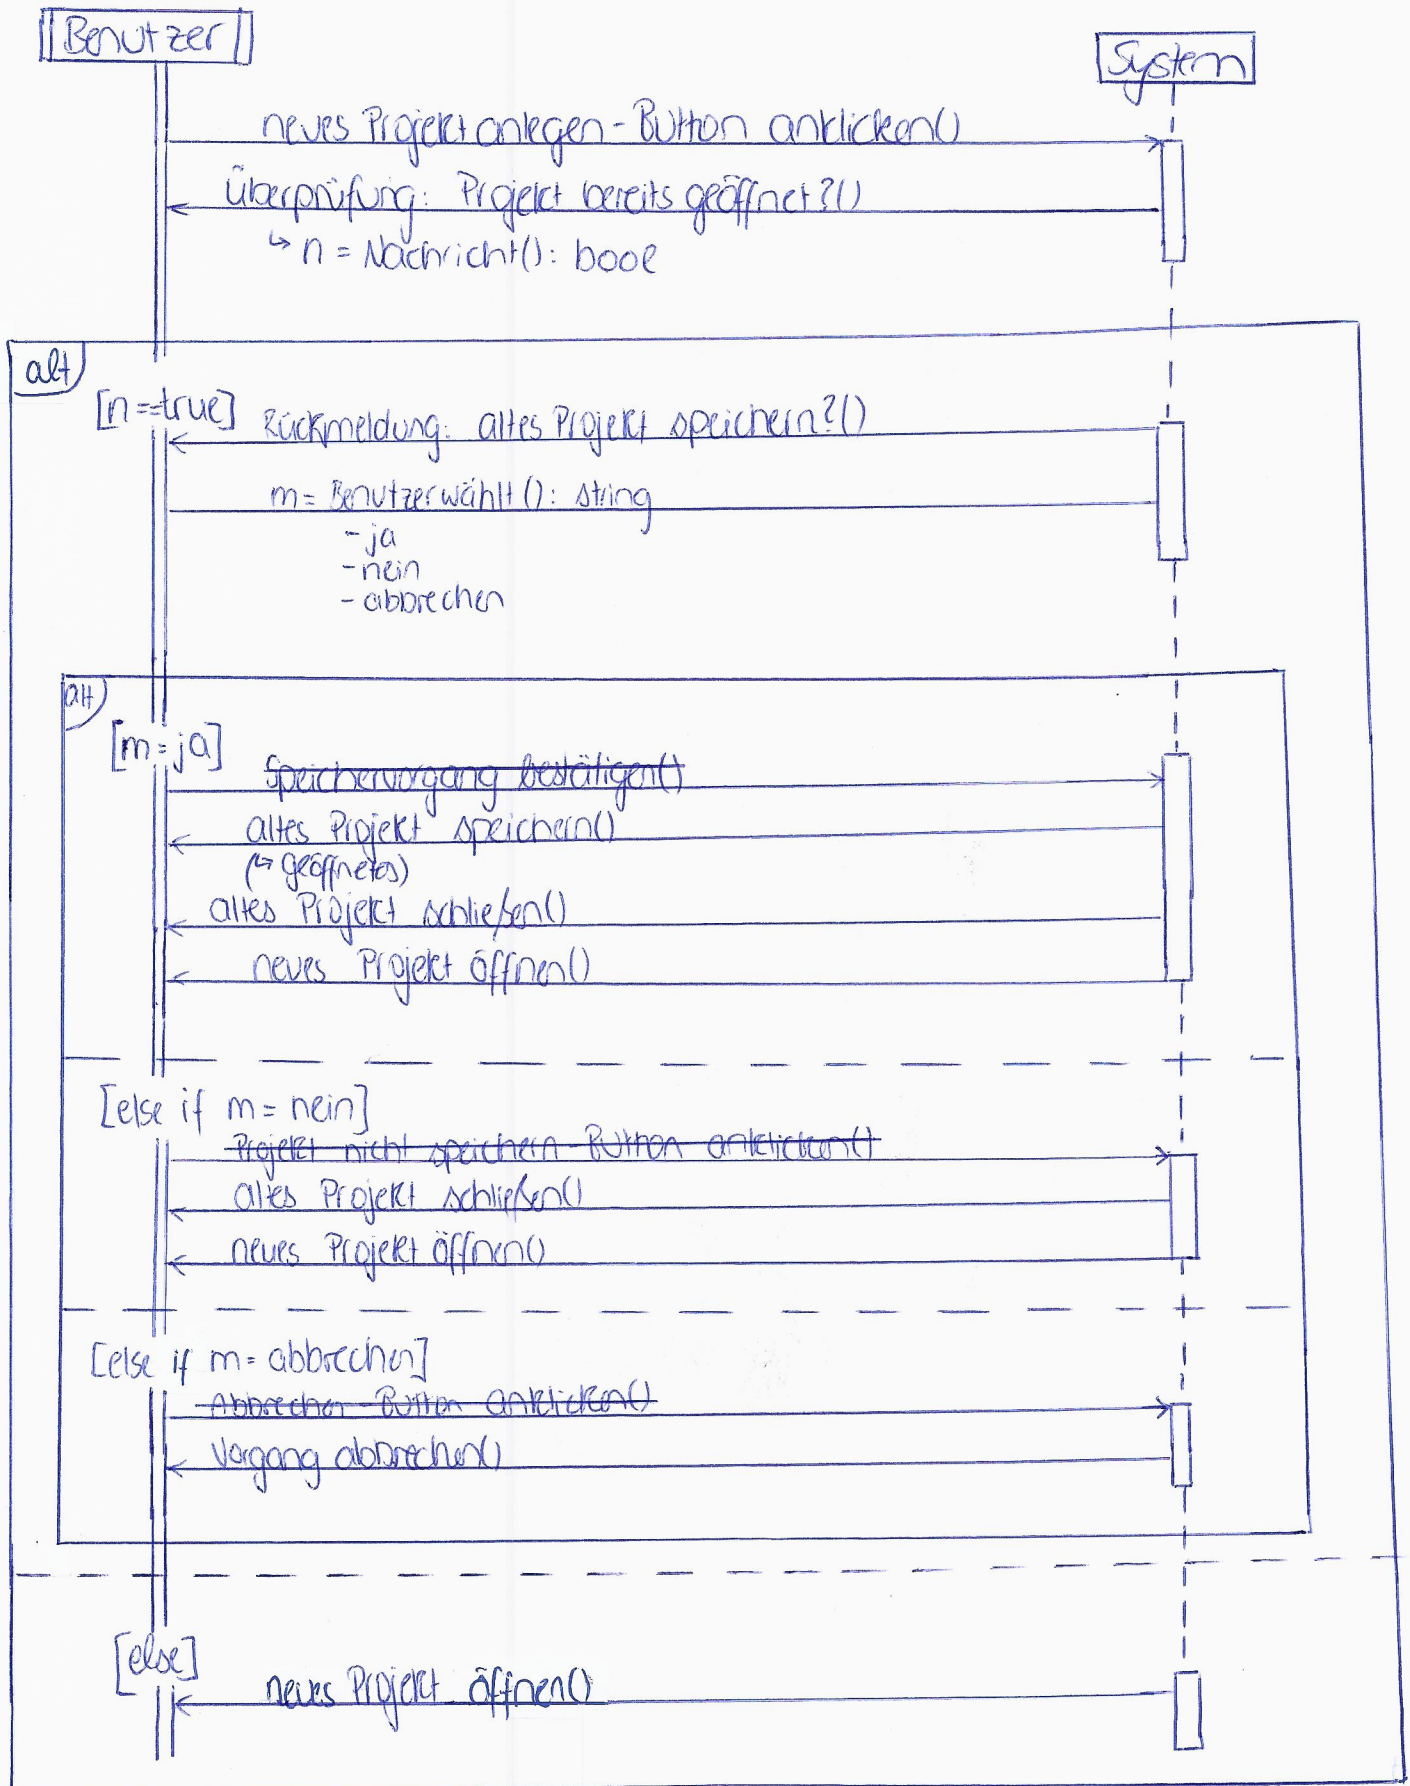 Benutzer
System
neues Projekt anlegen-Button anklicken()
Überprüfung: Projekt bereits geöffnet?()
↳ n = Nachricht(): bool
alt
[n==true]
Rückmeldung: altes Projekt speichern?()
m = Benutzer wählt(): string
- ja
- nein
- abbrechen
alt
[m=ja]
Speichervorgang bestätigen()
altes Projekt speichern()
(↳ geöffnetes)
altes Projekt schließen()
neues Projekt öffnen()
[else if m = nein]
Projekt nicht speichern-Button anklicken()
altes Projekt schließen()
neues Projekt öffnen()
[else if m = abbrechen]
Abbrechen-Button anklicken()
Vorgang abbrechen()
[else]
neues Projekt öffnen()